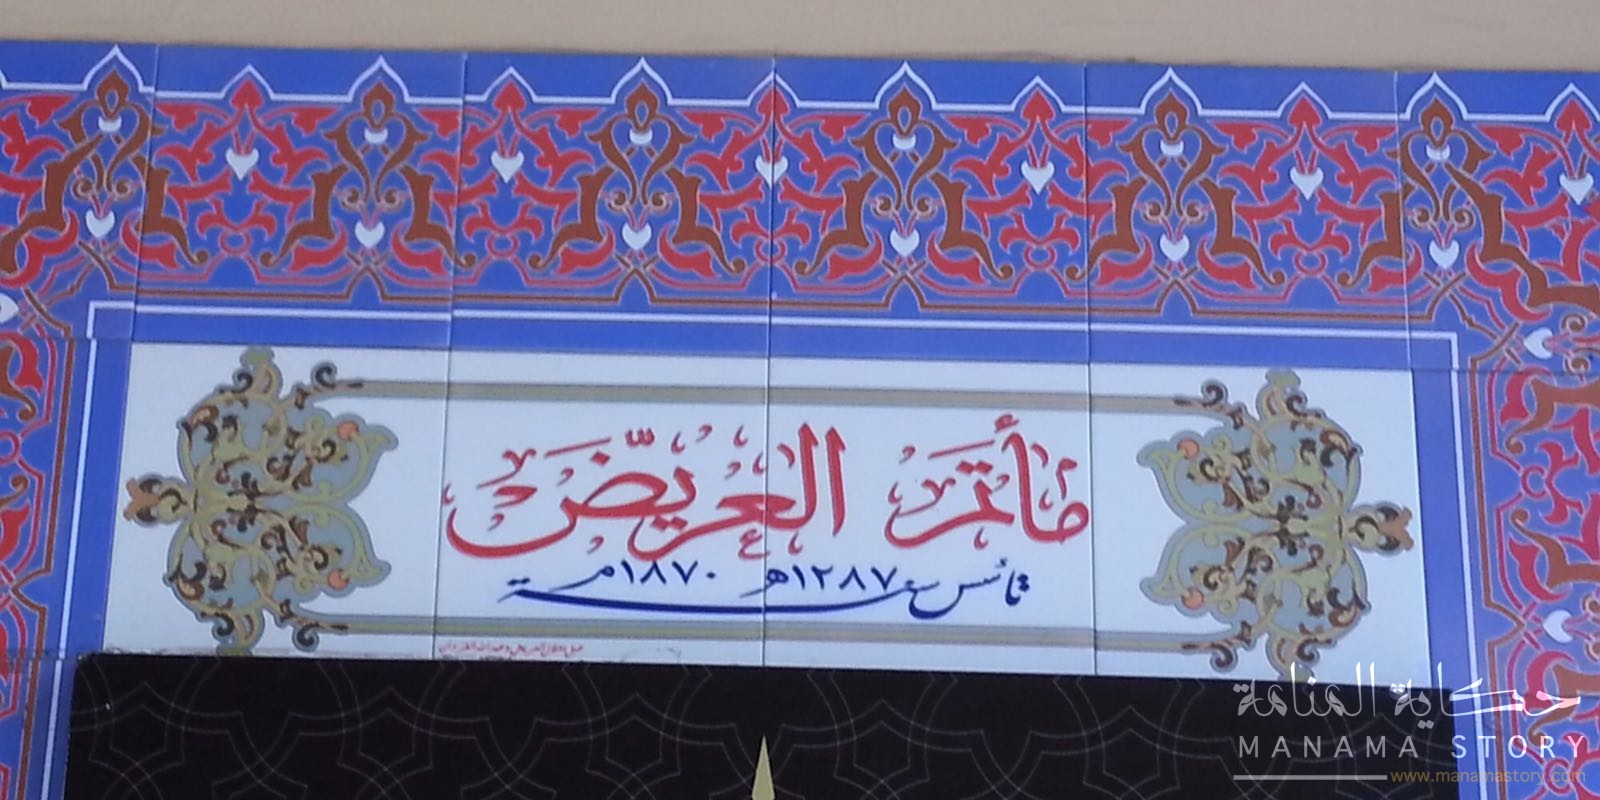 مأتم العريّض
تأسس سنة ١٢٨٧هـ ١٨٧٠م
حكاية المنامة
MANAMA STORY
www.manamastory.com